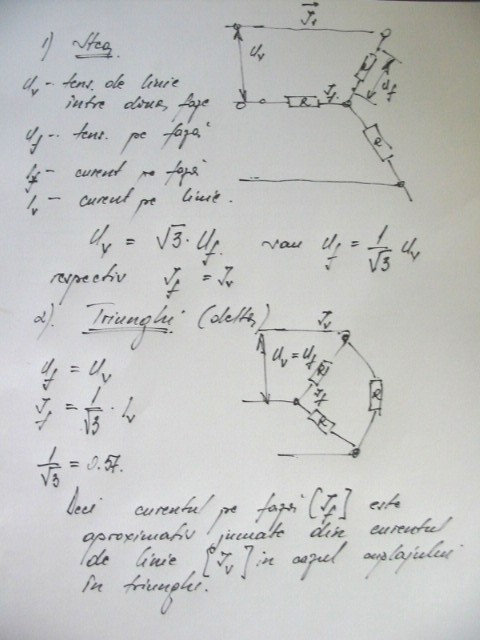 1) Stea
I₁
Uv
Uv - tens. de linie
între două faze
R
Uf
Uf - tens. pe fază
If
R
If - curent pe fază
R
Iv - curent pe linie.
Uv = √3 · Uf sau Uf = 1/√3 Uv
respectiv If = Iv
2). Triunghi (delta)
Iv
Uf = Uv
Uv = Uf
R
If
R
R
If = 1/√3 · Iv
1/√3 = 0.57.
Deci curentul pe fază [If] este
aproximativ jumate din curentul
de linie [Iv] în cazul cuplajului
în triunghi.